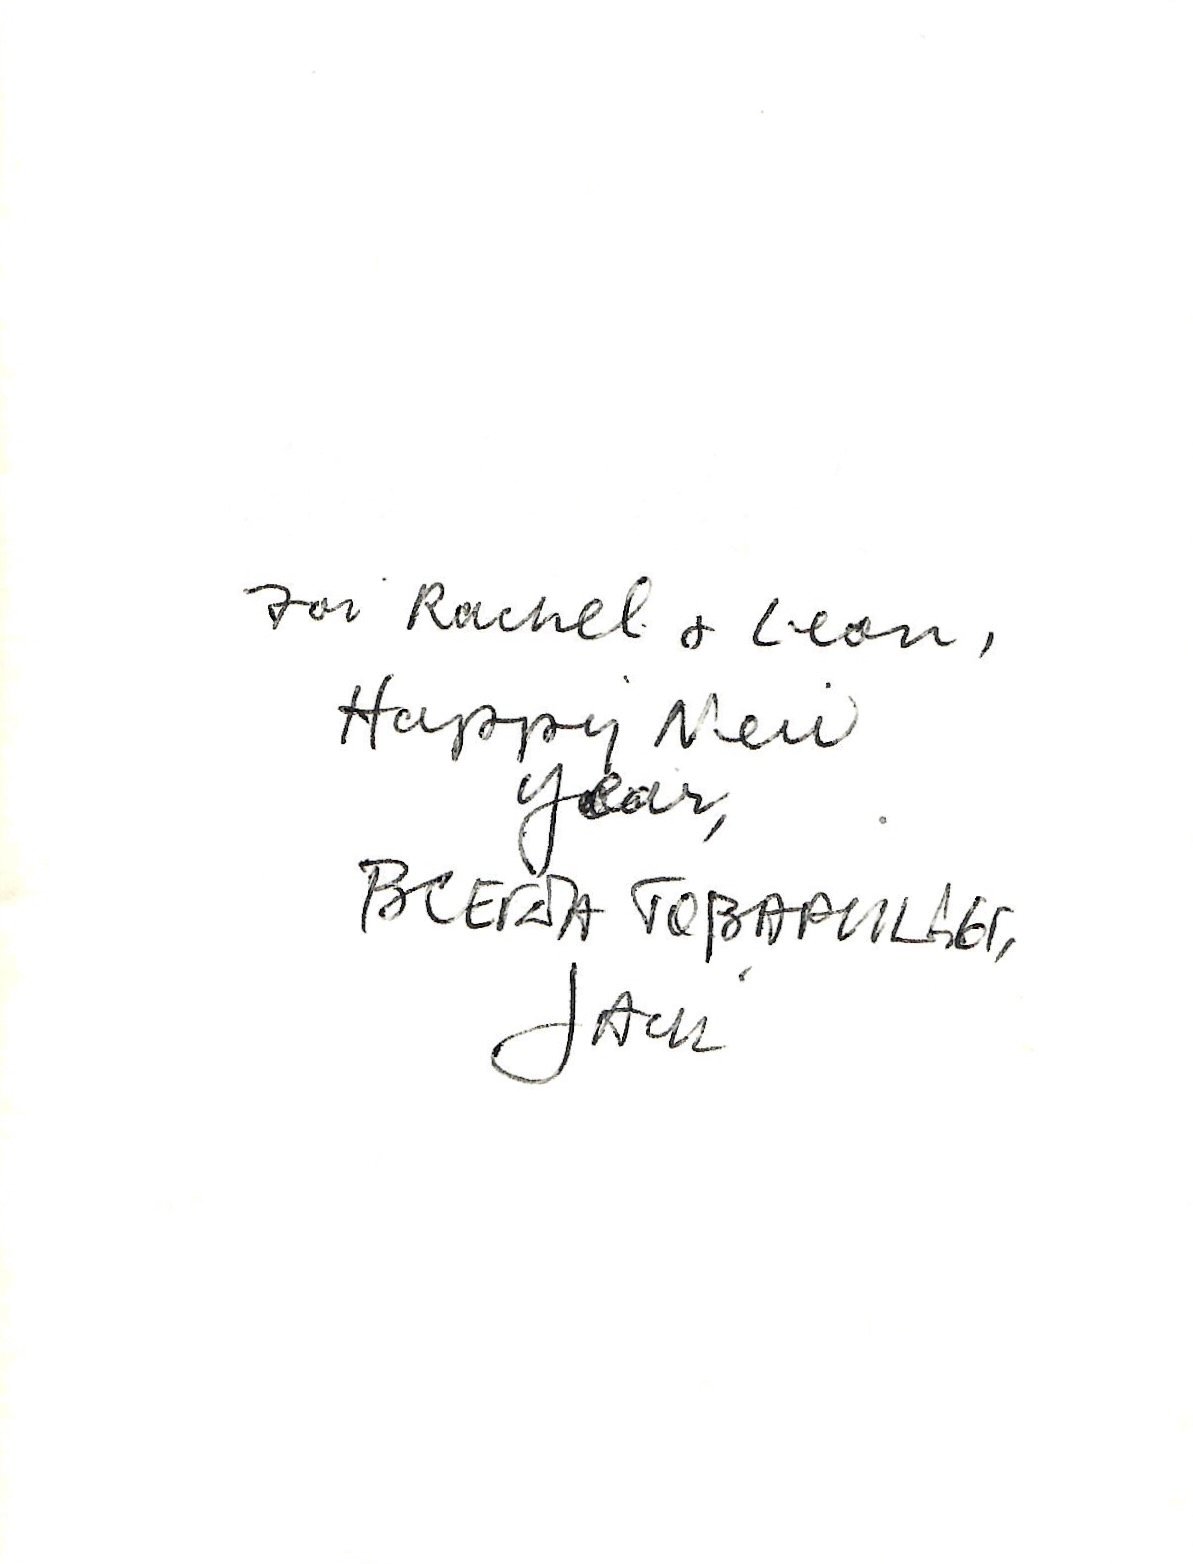 For Rachel & Leon,
Happy New
Year,
ВСЕГДА
Jack